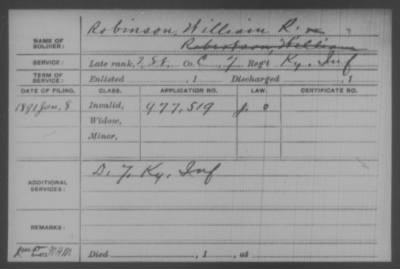 Robinson, William R.
NAME OF SOLDIER:
Robertson, William
SERVICE: Late rank, Co. C, 7 Reg't Ky. Inf
TERM OF SERVICE: Enlisted , 1 Discharged , 1
DATE OF FILING. CLASS. APPLICATION NO. LAW. CERTIFICATE NO.
1891 Jan. 8 Invalid, 977,519
Widow,
Minor,
ADDITIONAL SERVICES: D. 7. Ky. Inf
REMARKS:
Died , 1 , at